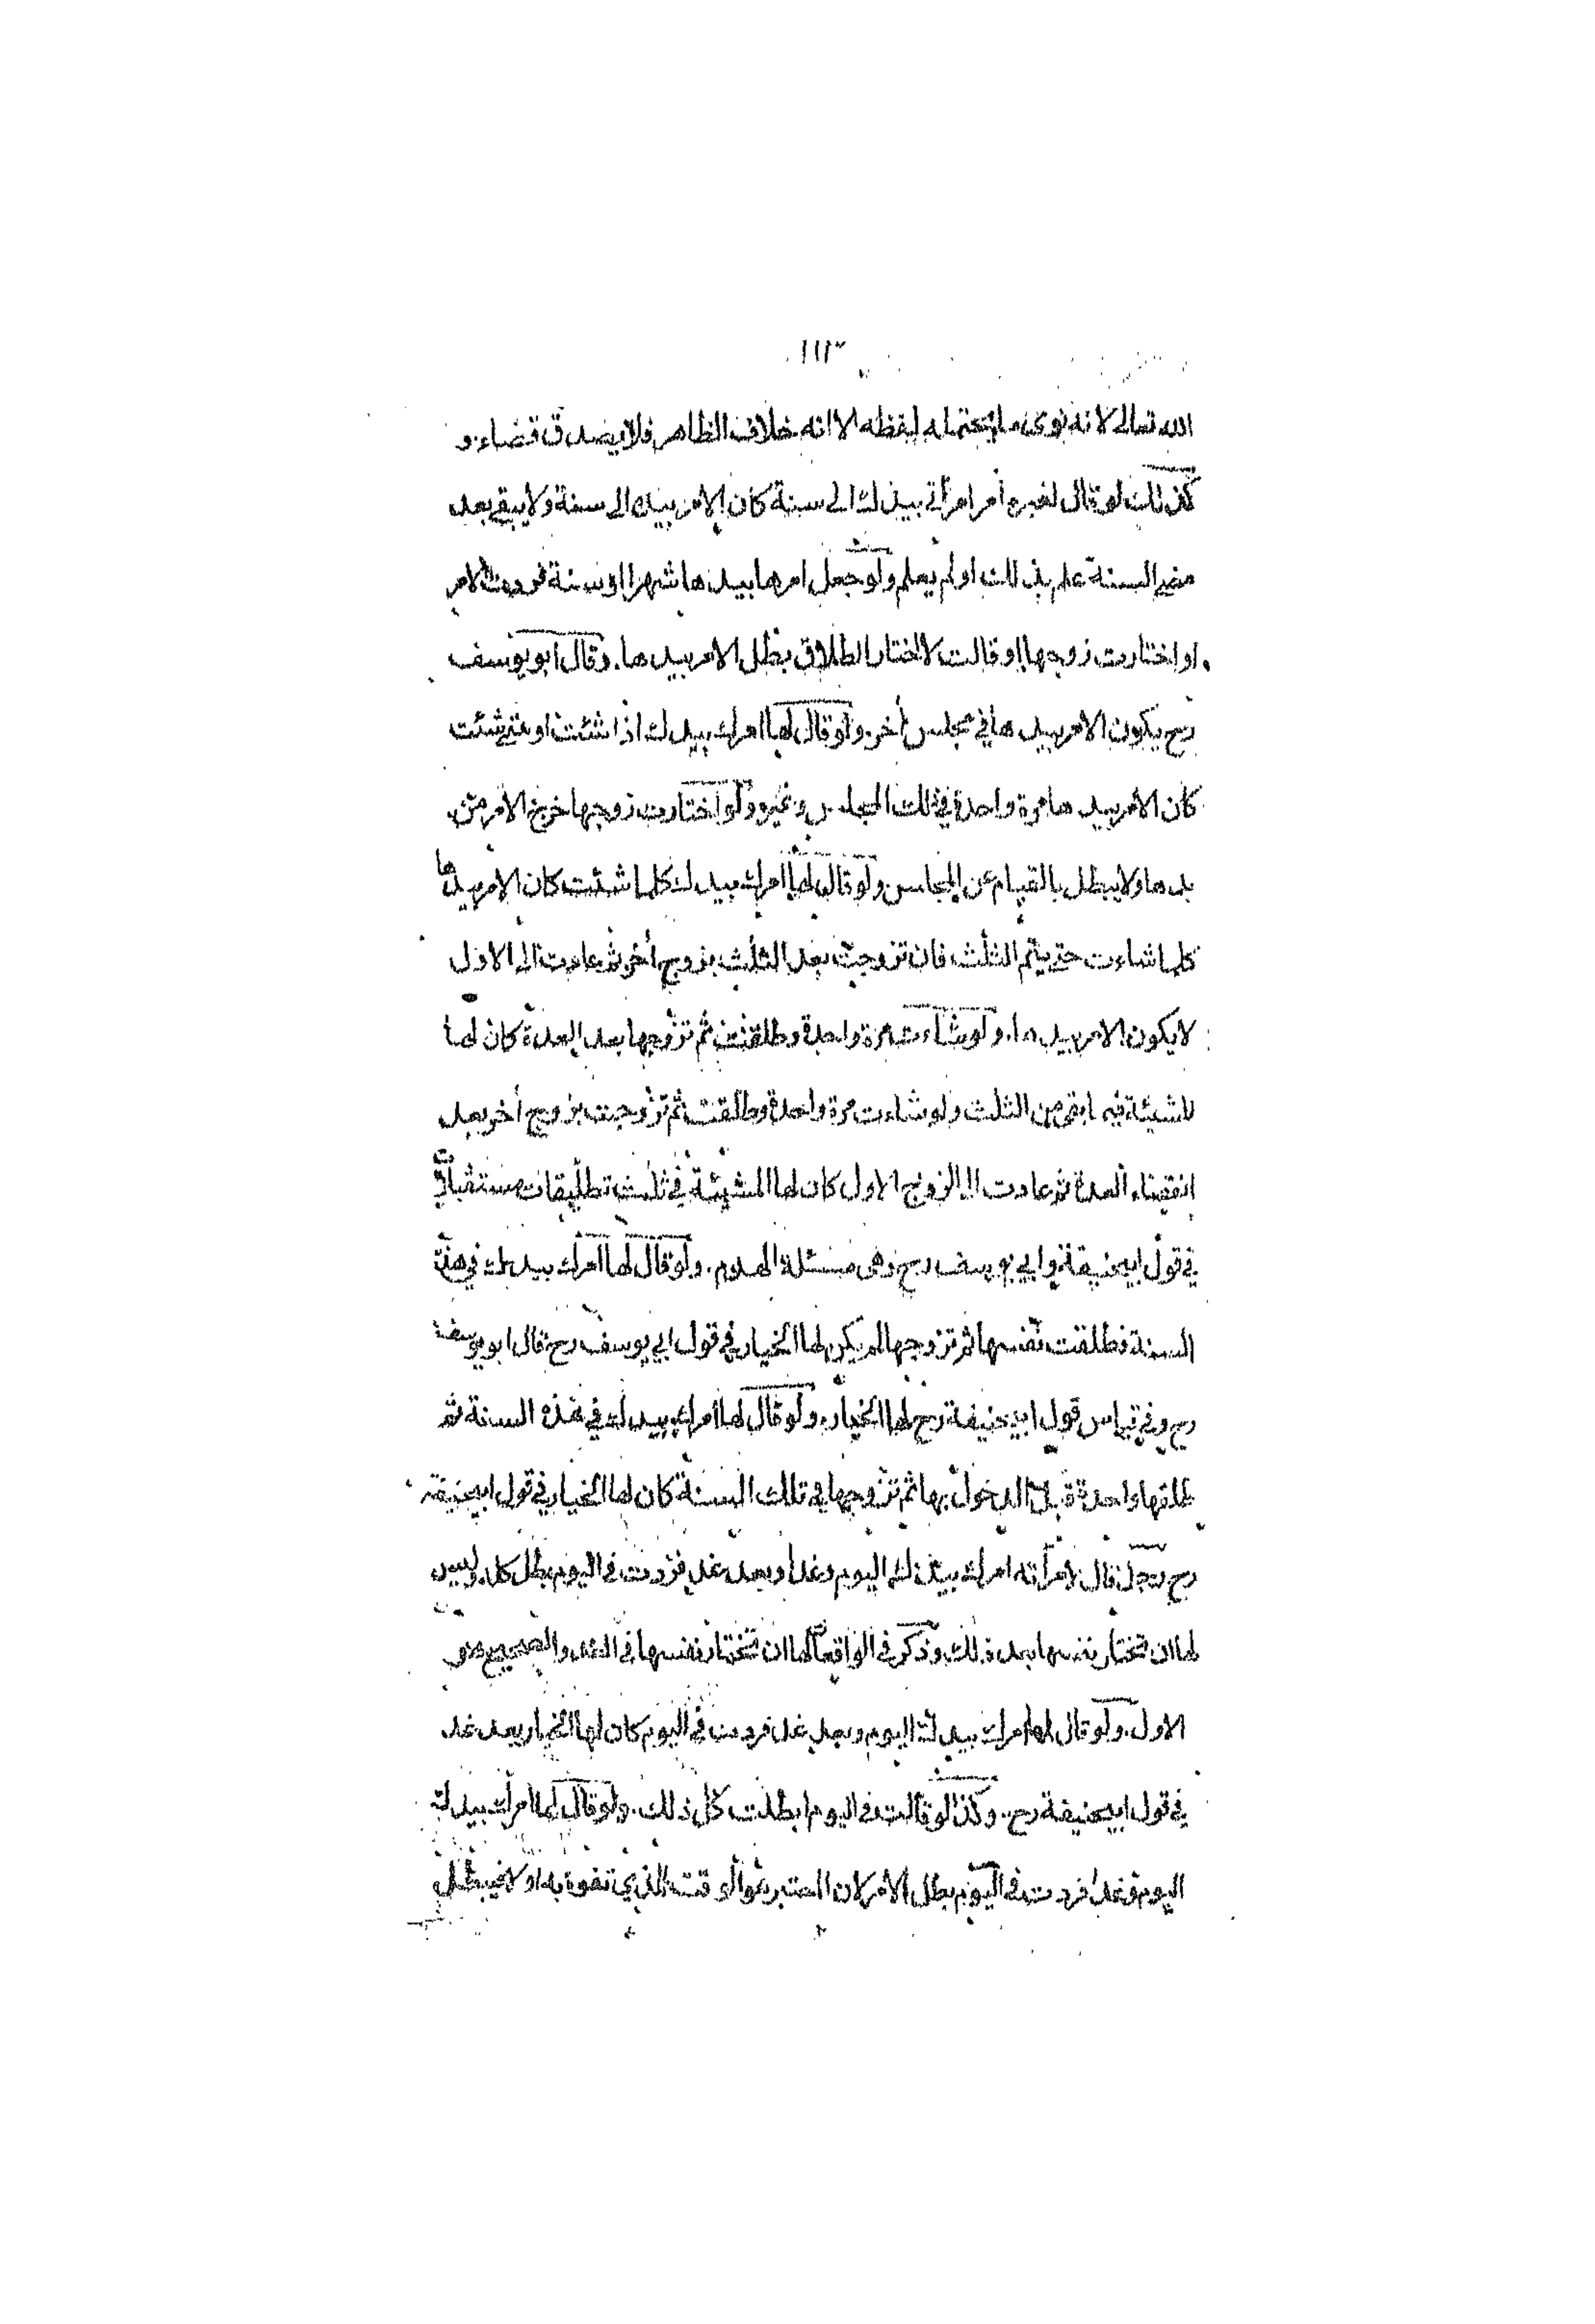 ١١٣
الله تعالى لانه نوى ما يحتمله لفظه الا انه خلاف الظاهر فلا يصدق قضاء و
كذلك لو قال لغيره أمر امرأتي بيدك الى سنة كان الامر بيده الى سنة ولا يبقى بعد
مضي السنة علم بذلك او لم يعلم ولو جعل امرها بيدها شهرا او سنة فردت الامر
او اختارت زوجها او قالت لا اختار الطلاق بطل الامر بيدها. وقال ابو يوسف
رح يكون الامر بيدها في مجلس أخر. ولو قال لها امرك بيدك اذا شئت او متى شئت
كان الامر بيدها مرة واحدة في ذلك المجلس وغيره ولو اختارت زوجها خرج الامر من
يدها ولا يبطل بالقيام عن المجلس. ولو قال لها امرك بيدك كلما شئت كان الامر بيدها
كلما شاءت حتى يتم الثلث فان تزوجت بعد الثلث بزوج أخر ثم عادت الى الاول
لا يكون الامر بيدها. ولو شاءت مرة واحدة وطلقت ثم تزوجها بعد العدة كان لها
المشيئة فيما بقى من الثلث ولو شاءت مرة واحدة وطلقت ثم تزوجت بزوج أخر بعد
انقضاء العدة ثم عادت الى الزوج الاول كان لها المشيئة في ثلث تطليقات مستقبلات
في قول ابيحنيفة وابي يوسف رح وهى مسئلة الهدم. ولو قال لها امرك بيدك في هذه
السنة فطلقت نفسها ثم تزوجها لم يكن لها الخيار في قول ابي يوسف رح قال ابو يوسف
رح وفي قياس قول ابي حنيفة رح لها الخيار. ولو قال لها امرك بيدك في هذه السنة ثم
طلقها واحدة قبل الدخول بها ثم تزوجها في تلك السنة كان لها الخيار في قول ابيحنيفة
رح رجل قال لامرأته امرك بيدك اليوم وغدا وبعد غد فردت في اليوم بطل كله وليس
لها ان تختار نفسها بعد ذلك وذكر في الواقعات لها ان تختار نفسها في الغد والصحيح هو
الاول. ولو قال لها امرك بيدك اليوم وبعد غد فردت في اليوم كان لها الخيار بعد غد
في قول ابيحنيفة رح. وكذا لو قالت في اليوم ابطلت كل ذلك. ولو قال لها امرك بيدك
اليوم وغدا فردت في اليوم بطل الامر لان المعتبر هو الوقت الذي تفوه به اولا فيبطل